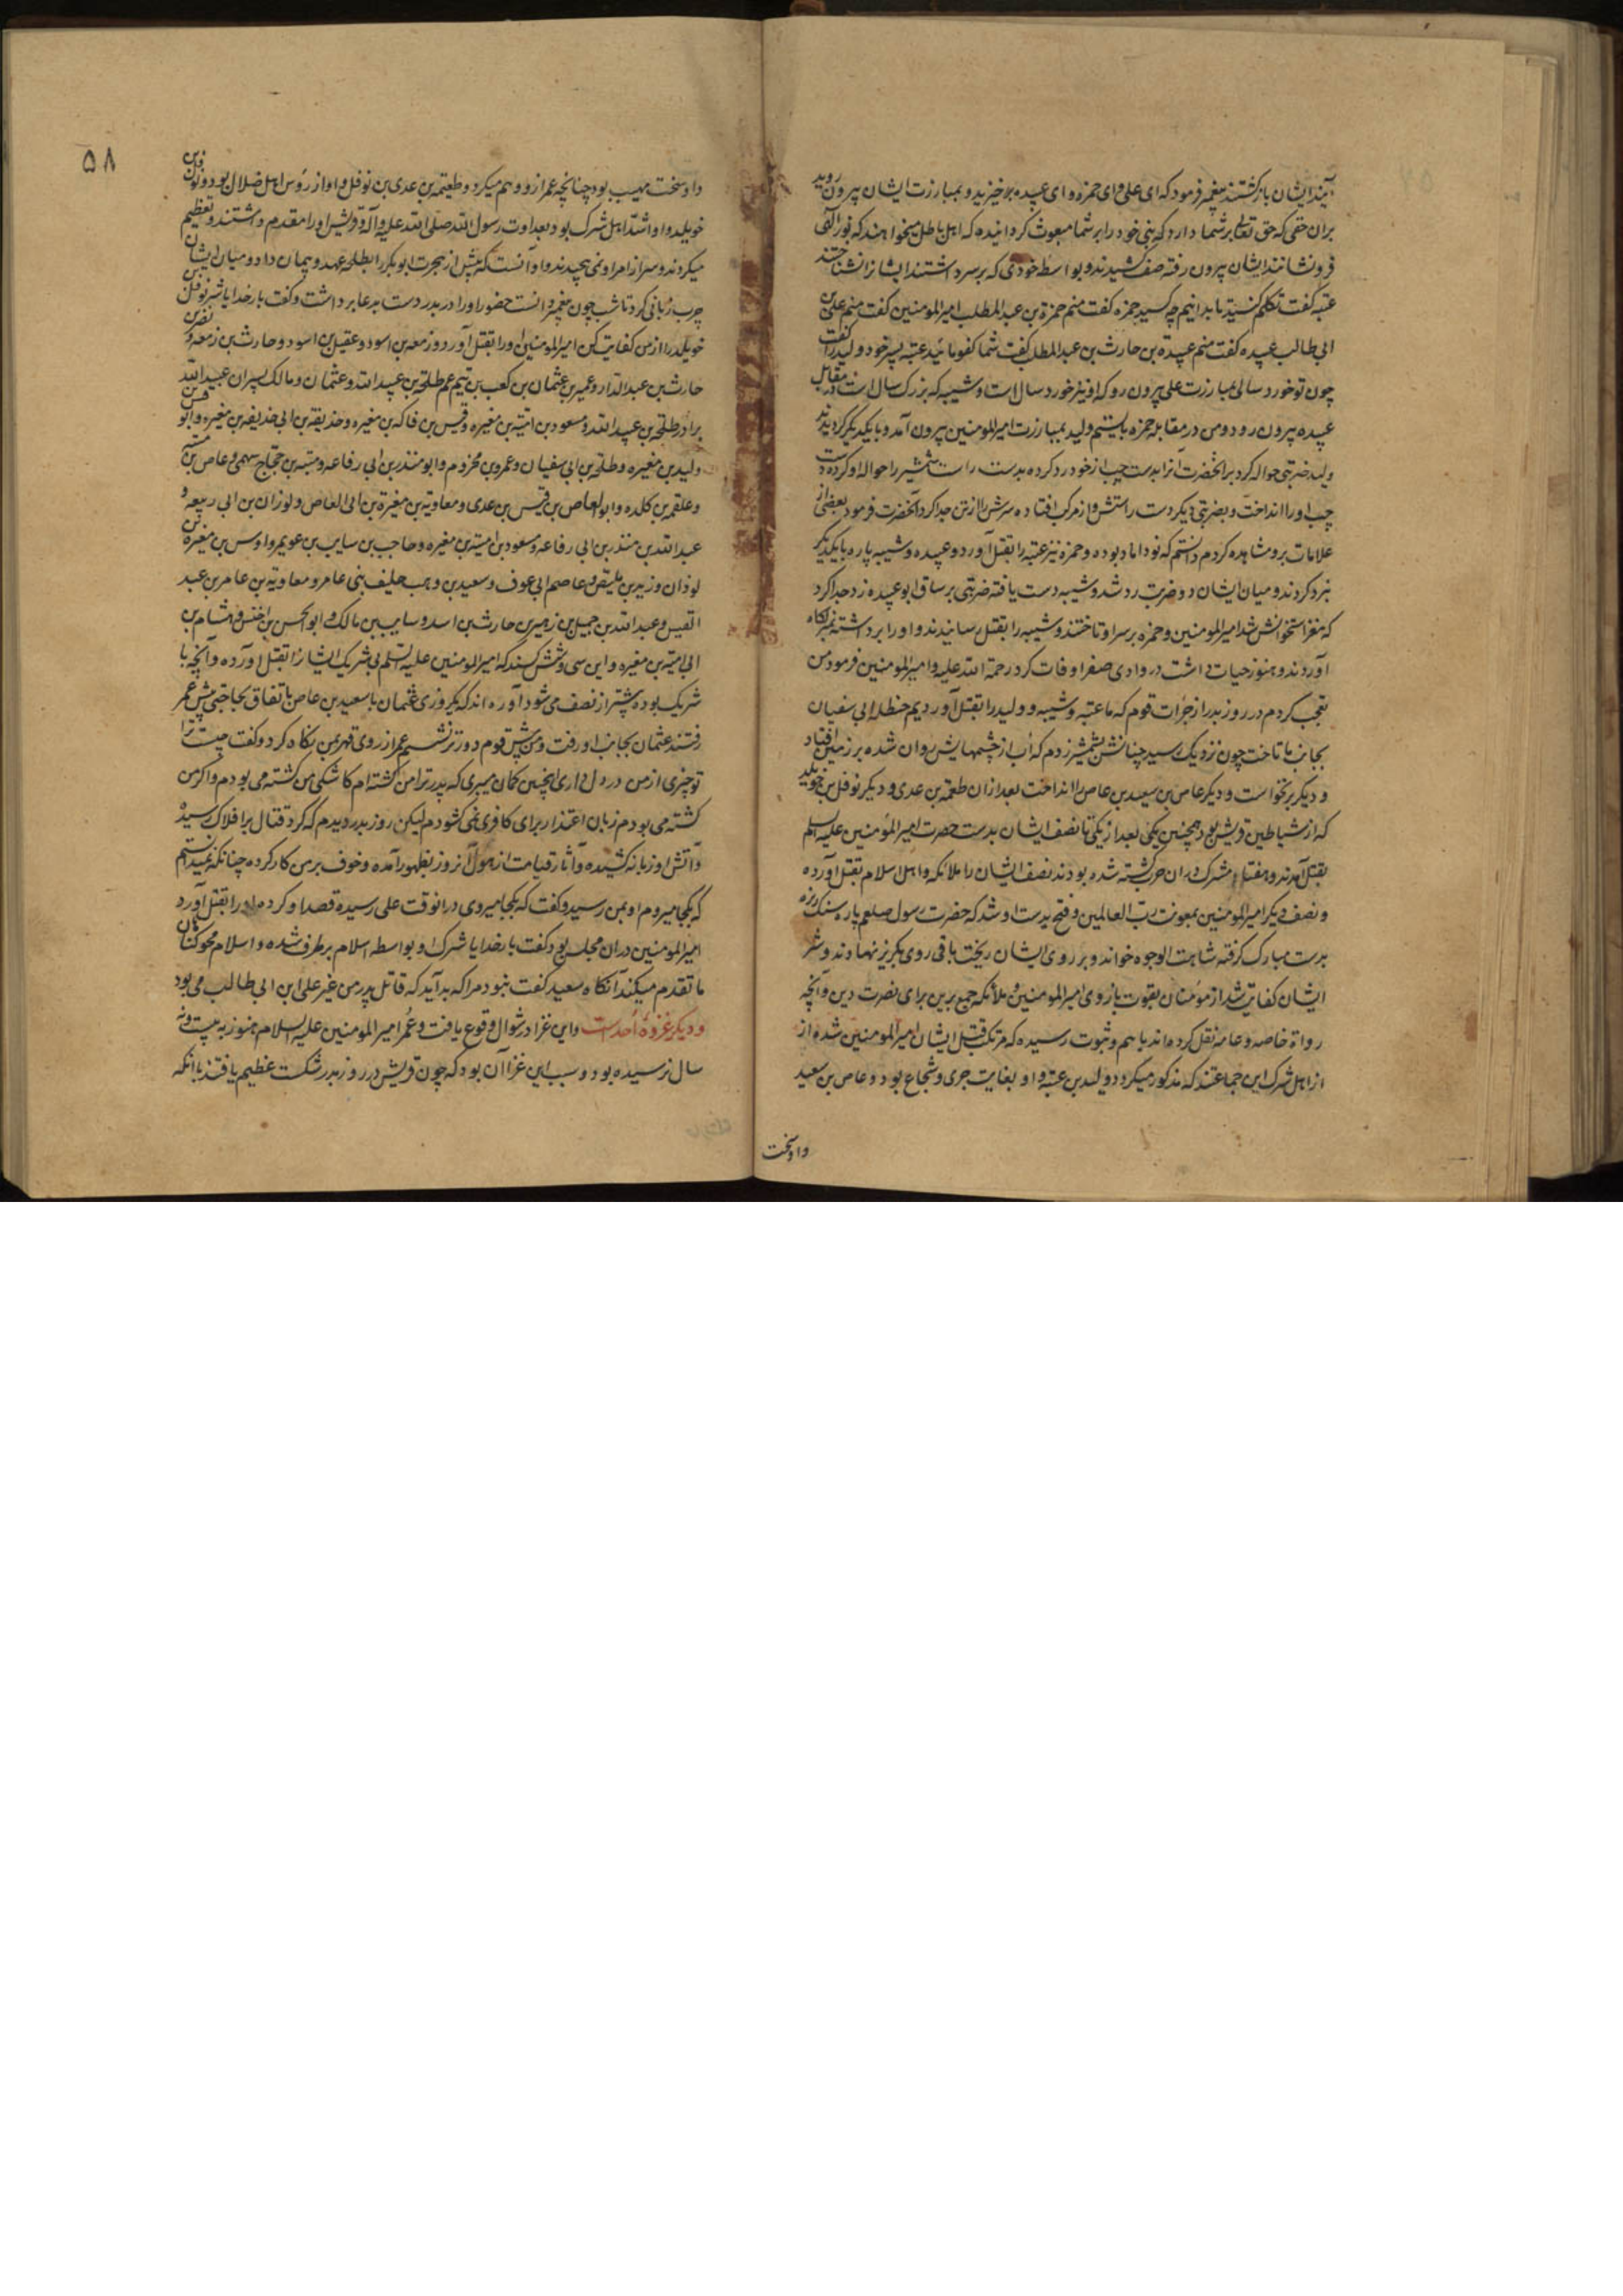 آیند ایشان باز گشتند پیغمبر فرمود که ای علی و ای حمزه و ای عبیده برخیزید و بمبارزت ایشان بیرون روید
بران حقی که حق تعالی بر شما دارد که نبی خود را بر شما مبعوث گردانیده که اهل باطل میخواهند که نور الهی
فرو نشانند ایشان بیرون رفته صف کشیدند و بواسطه خودی که بر سر داشتند ایشانرا نشناختند
عتبه گفت تکلم کنید تا بدانیم چه کسید حمزه گفت منم حمزة بن عبد المطلب امیر المومنین گفت منم علی بن
ابی طالب عبیده گفت منم عبیدة بن حارث بن عبد المطلب گفت شما کفو مائید عتبه پسر خود ولید را گفت
چون تو خورد سالی بمبارزت علی بیرون رو که او نیز خورد سال است و شیبه که بزرک سال است در مقابل
عبیده بیرون رود و من در مقابله حمزه بایستم ولید بمبارزت امیر المومنین بیرون آمد و با یکدیکر کردیدند
ولید ضربتی حواله کرد بر انحضرت آنرا بدست چپ از خود رد کرده بدست راست شمشیر را حواله او کرده دست
چپ او را انداخت و بضربتی دیکر دست راستش و از مرکب افتاده سرش را از تن جدا کرد آنحضرت فرمود بعضی از
علامات برو مشاهده کردم دانستم که نو داماد بوده و حمزه نیز عتبه را بقتل آورد و عبیده و شیبه پاره با یکدیکر
نبرد کردند و میان ایشان دو ضربت رد شد و شیبه دست یافته ضربتی بر ساق ابو عبیده زد جدا کرد
که مغز استخوانش شد امیر المومنین و حمزه بر سر او تاختند و شیبه را بقتل رسانیدند و او را برداشته
آوردند و هنوز حیات داشت در وادی صفرا وفات کرد رحمة الله علیه و امیر المومنین فرمود من
تعجب کردم در روز بدر از جرات قوم که ما عتبه و شیبه و ولید را بقتل آوردیم حنظله ابی سفیان
بجانب ما تاخت چون نزدیک رسید چنانش شمشیر زدم که آب از چشمهایش روان شده بر زمین افتاد
و دیکر برنخواست و دیکر عاص بن سعید بن عاص را انداخت بعد ازان طعمة بن عدی و دیکر نوفل بن خویلد
که از شیاطین قریش بود همچنین یکی بعد از یکی تا نصف ایشان بدست حضرت امیر المؤمنین علیه السلم
بقتل آمدند و هفتاد مشرک دران حرب کشته شده بودند نصف ایشان را ملائکه و اهل اسلام بقتل آورده
و نصف دیکر امیر المومنین بمعونت رب العالمین و فتح بدست او شد که حضرت رسول صلعم پاره سنک ریزه
بدست مبارک کرفته شاهت الوجوه خواند و بر روی ایشان ریخت باقی روی بکریز نهادند و شر
ایشان کفایت شد از مؤمنان بقوت بازوی امیر المومنین و ملائکه جمع برین برای نصرت دین و آنچه
رواة خاصه و عامه نقل کرده اند باسم و ثبوت رسیده که مرتکب قتل ایشان امیر المومنین شده از
از اهل شرک این جماعتند که مذکور میکردد ولید بن عتبه و او بغایت جری و شجاع بود و عاص بن سعید
و او سخت
۵۸
و او سخت مهیب بود چنانچه عمر ازو وهم میکرد و طعیمة بن عدی بن نوفل و او از رؤس اهل ضلال بود و نوفل بن
خویلد و او اشد اهل شرک بود بعداوت رسول الله صلی الله علیه و آله و قریش او را مقدم داشتند و تعظیم
میکردند و سر از امر او نمی پیچیدند و او آنست که پیش از هجرت ابو بکر را بطلحه عهد و پیمان داد و میان ایشان
چرب زبانی کرد تا شب چون پیغمبر دانست حضور او را در بدر دست بدعا برداشت و کفت بار خدایا شر نوفل بن
خویلد را از من کفایت کن امیر المومنین او را بقتل آورد و زمعه بن اسود و عقیل بن اسود و حارث بن زمعه و نضر بن
حارث بن عبد الدار و عمیر بن عثمان بن کعب بن تیم عم طلحة بن عبید الله و عثمان و مالک پسران عبید الله
برادر طلحة بن عبید الله و مسعود بن امیة بن مغیره و قیس بن فاکه بن مغیره و حذیفة بن ابی حذیفه بن مغیره و ابو قیس بن
ولید بن مغیره و حنظلة بن ابی سفیان و عمرو بن مخزوم و ابو منذر بن ابی رفاعه و منبه بن حجاج سهمی و عاص بن منبه
و علقمه بن کلده و ابو العاص بن قیس بن عدی و معاویة بن مغیرة بن ابی العاص و لوزان بن ابی ربیعه و
عبد الله بن منذر بن ابی رفاعه و مسعود بن امیة بن مغیره و حاجب بن سایب بن عویمر و اوس بن مغیرة بن
لوذان و زیر بن ملیص و عاصم ابی عوف و سعید بن وهب حلیف بنی عامر و معاویة بن عامر بن عبد
القیس و عبد الله بن جمیل بن زهیر بن حارث بن اسد و سایب بن مالک و ابو الحسن بن اخنس و هشام بن
ابی امیة بن مغیره و این سی و شش کسند که امیر المومنین علیه السلم بی شریک ایشانرا بقتل آورده و آنچه با
شریک بوده بیشتر از نصف می شود آورده اند که یکروزی عثمان با سعید بن عاص باتفاق بحاجتی پیش عمر
رفتند عثمان بجانب او رفت و من پیش قوم دورتر نشستم عمر از روی قهر بمن نکاه کرد و کفت چیست ترا
تو چیزی از من در دل داری اینچنین کمان میبری که پدر ترا من کشته ام کاشکی من کشته می بودم و اکر من
کشته می بودم زبان اعتذار برای کافری نمی کشودم لیکن روز بدر دیدم که کرد قتال بر افلاک رسیده
و آتش او زبانه کشیده و آثار قیامت از هول آنروز بظهور آمده و خوف بر من کار کرده چنانکه نمیدانستم
که بکجا میروم او بمن رسید و کفت که بکجا میروی درانوقت علی رسیده قصد او کرده او را بقتل آورد
امیر المومنین دران مجلس بود کفت بار خدایا شرک او بواسطه اسلام برطرف شده و اسلام محو کناهان
ما تقدم میکند آنکاه سعید کفت نبود مرا که بد آید که قاتل پدر من غیر علی ابن ابی طالب می بود
و دیکر غزوه احد است و این غزا در شوال وقوع یافت و عمر امیر المومنین علیه السلام هنوز به بیست و نه
سال نرسیده بود و سبب این غزا آن بود که چون قریش در روز بدر شکست عظیم یافتند بانکه